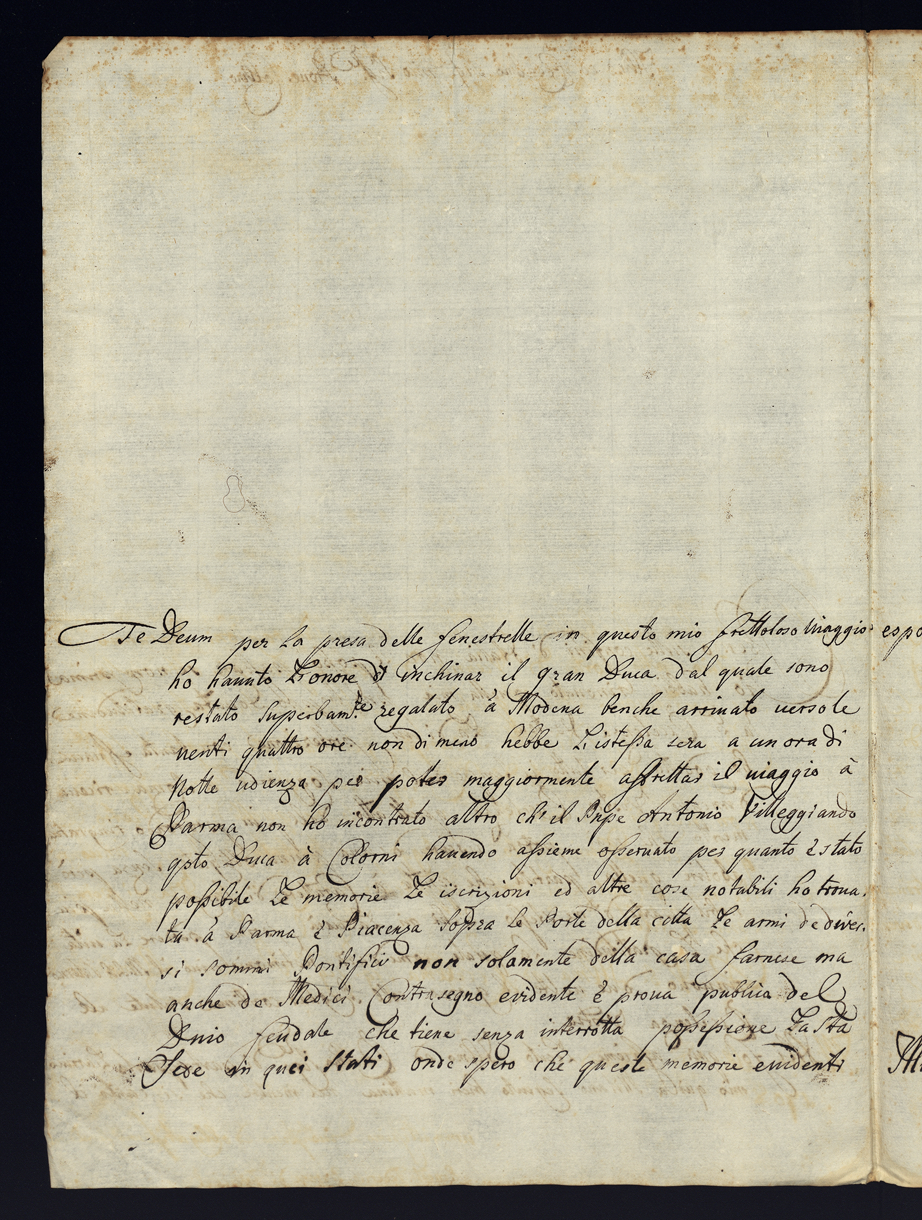 Te Deum per La presa delle fenestrelle in questo mio frettoloso Viaggio espo
ho hauuto L'onore d'inchinar il gran Duca dal quale sono
restato Superbam.te regalato à Modena benche arriuato uerso le
uenti quattro ore non di meno hebbe L'istessa sera a un ora di
Notte udienza per poter maggiormente affrettar il uiaggio à
Parma non ho incontrato altro ch'il Pnpe Antonio Villeggiando
qsto Duca à Colorni hauendo assieme osseruato per quanto è stato
possibile Le memorie Le iscrizioni ed altre cose notabili ho troua.
ta à Parma è Piacenza Sopra Le Porte della citta Le armi de diver.
si sommi Pontifici non solamente della casa farnese ma
anche de Medici Contrasegno evidente è proua publica del
Dnio feudale che tiene senza interrotta possessione La Sta
Sede in quei Stati onde spero che queste memorie evidenti